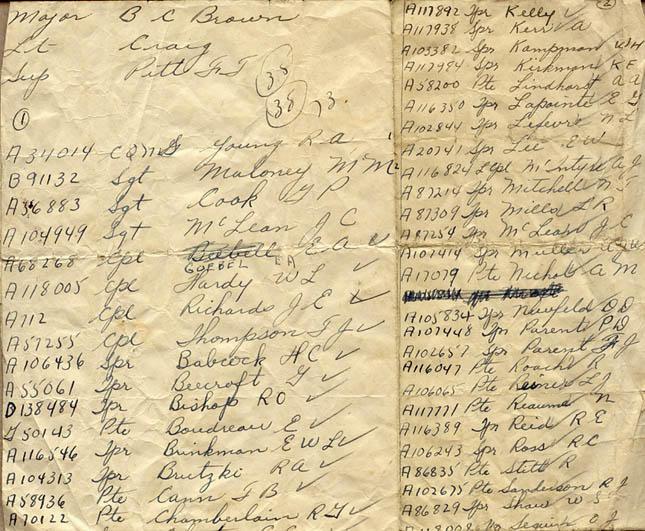 Major B C Brown
Lt Craig
Sup Pitt F T
38
38 13
1
A34014 CQMS Young R A
B91132 Sgt Maloney M M
A36883 Sgt Cook G P
A104949 Sgt McLean J C
A68268 Cpl E A
GOEBEL EA
A118005 Cpl Hardy W L
A112 Cpl Richards J E
A57255 Cpl Thompson F J
A106436 Spr Babcock H C
A55061 Tpr Beecroft G
D138484 Tpr Bishop R O
F50143 Pte Boudreau E
A116546 Tpr Brinkman E W L
A104313 Tpr Brutzki R A
A58936 Pte Cann F B
A70122 Pte Chamberlain R G
2
A117892 Tpr Kelly
A117938 Spr Kerr A
A103382 Spr Kampman W H
A117984 Spr Kirkman K E
A58200 Pte Lindhart A A
A116350 Tpr Lapointe E G
A102844 Tpr Lefevre N L
A20741 Spr Lee E W
A116824 LCpl McIntyre J
A87214 Spr Mitchell N S
A87309 Spr Mills L R
A87254 Tpr McLean J C
A107414 Spr Muller W
A17079 Pte Nichols A M
A105834 Tpr Neufeld D D
A107448 Tpr Parent P D
A102657 Spr Parent J
A116047 Pte Roach R
A106065 Pte Reine L J
A117771 Pte Reaume N
A116389 Tpr Reid R E
A106243 Spr Ross R C
A86835 Pte Stitt R
A102675 Pte Sanderson R J
A86829 Spr Shaw W S
A118008